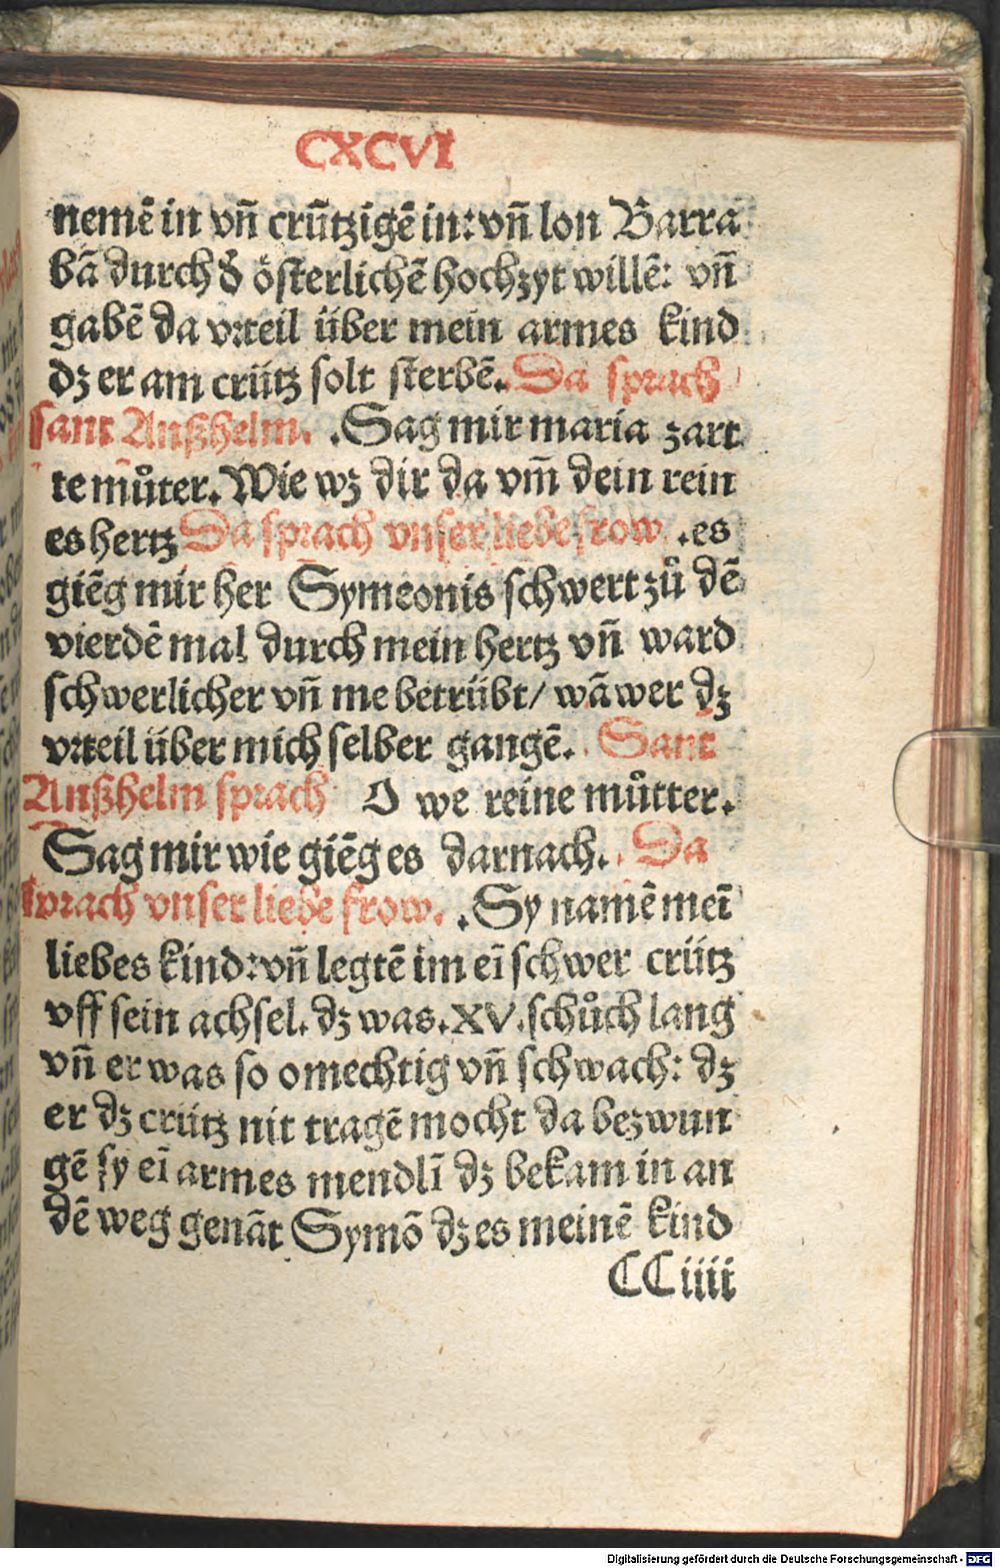 CXCVI
nemē in vñ crūtzigē in: vñ lon Barra
bā durch d̕ österlichē hochzyt willē: vñ
gabē da vrteil über mein armes kind
dz er am crütz solt sterbē. Da sprach
sant Anßhelm. .Sag mir maria zart
te můter. Wie wz dir da vm̄ dein rein
es hertz Da sprach vnser liebe frow .es
giēg mir her Symeonis schwert zů dē
vierdē mal durch mein hertz vñ ward
schwerlicher vñ me betrübt/ wā wer dz
vrteil über mich selber gangē. Sant
Anßhelm sprach O we reine můtter.
Sag mir wie giēg es darnach. Da
sprach vnser liebe frow. .Sy namē meī
liebes kind: vñ legtē im eī schwer crütz
vff sein achsel. dz was .XV. schůch lang
vñ er was so omechtig vñ schwach: dz
er dz crütz nit tragē mocht da bezwun
gē sy eī armes mendlī dz bekam in an
dē weg genāt Symō dz es meinē kind
CCiiii
Digitalisierung gefördert durch die Deutsche Forschungsgemeinschaft - DFG